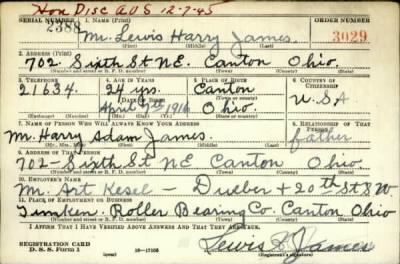 Hon Disc AUS 12-7-45
SERIAL NUMBER 1. NAME (Print) ORDER NUMBER
2388 Mr. Lewis Harry James. 3029
(First) (Middle) (Last)
2. ADDRESS (Print)
702 Sixth St N.E. Canton Ohio.
(Number and street or R. F. D. number) (Town) (County) (State)
3. TELEPHONE 4. AGE IN YEARS 5. PLACE OF BIRTH 6. COUNTRY OF CITIZENSHIP
21634. 24 yrs. Canton
DATE OF BIRTH (Town or county)
April 7th 1916 Ohio. U.S.A
(Exchange) (Number) (Mo.) (Day) (Yr.) (State or country)
7. NAME OF PERSON WHO WILL ALWAYS KNOW YOUR ADDRESS 8. RELATIONSHIP OF THAT PERSON
Mr. Harry Adam James. father
(Mr., Mrs., Miss) (First) (Middle) (Last)
9. ADDRESS OF THAT PERSON
702 - Sixth St NE Canton Ohio.
(Number and street or R. F. D. number) (Town) (County) (State)
10. EMPLOYER'S NAME
Mr. Art Kesel - Dueber + 20th St SW
11. PLACE OF EMPLOYMENT OR BUSINESS
Timken Roller Bearing Co. Canton Ohio
(Number and street or R. F. D. number) (Town) (County) (State)
I AFFIRM THAT I HAVE VERIFIED ABOVE ANSWERS AND THAT THEY ARE TRUE.
REGISTRATION CARD
D. S. S. Form 1 16-17105 Lewis H. James
(Registrant's signature)